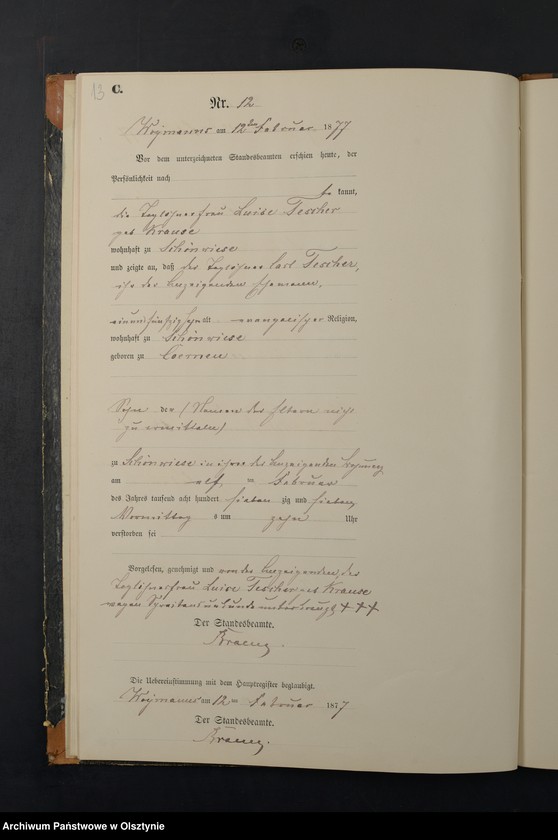 13 C.
Nr. 12
am 12ten Februar 1877
Vor dem unterzeichneten Standesbeamten erschien heute, der
Persönlichkeit nach
kannt,
die Luise Tescher
geb Krause
wohnhaft zu Schönwiese
und zeigte an, daß der Carl Tescher,
ihr der Anzeigenden Ehemann,
alt evangelischer Religion,
wohnhaft zu Schönwiese
geboren zu
Sohn der (Namen der Eltern nicht
zu ermitteln)
zu Schönwiese in ihrer der Anzeigenden Wohnung
am elf Februar
des Jahres tausend acht hundert sieben zig und sieben
Vormittag s um zehn Uhr
verstorben sei
Vorgelesen, genehmigt und von der Anzeigenden, der
Luise Tescher geb Krause
wegen +++
Der Standesbeamte.
Die Uebereinstimmung mit dem Hauptregister beglaubigt.
am 12ten Februar 1877
Der Standesbeamte.
Archiwum Państwowe w Olsztynie